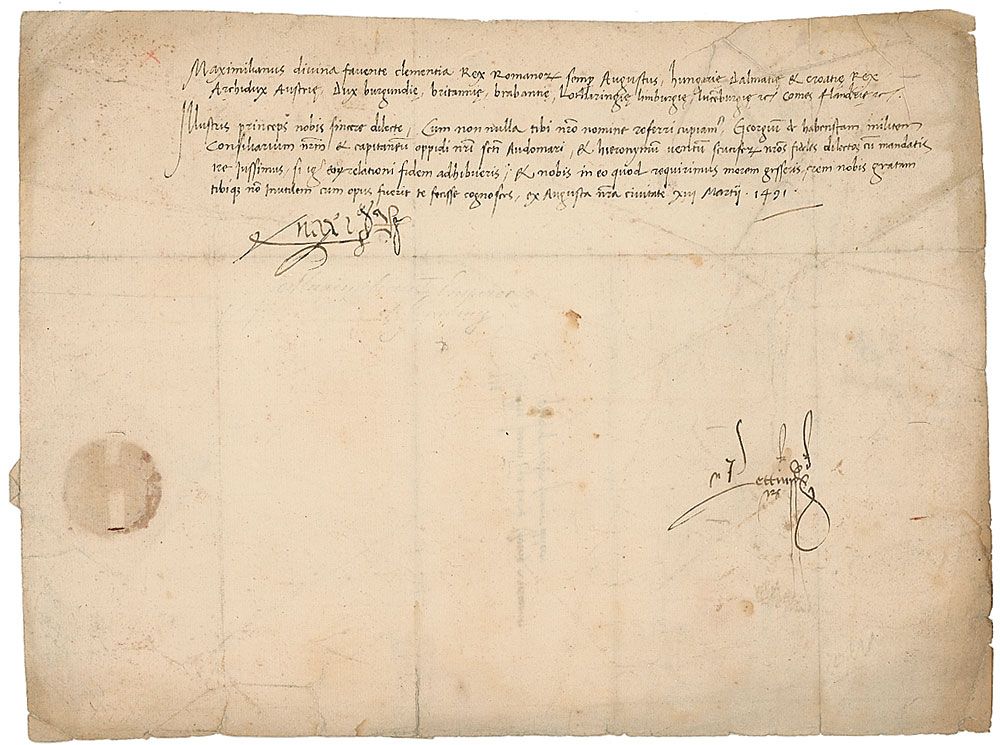 Maximilianus divina favente clementia Rex Romanoꝝ semp Augustus, hungarię Dalmatię & croatię Rex
Archidux Austrię, Dux burgundię, britannię, brabantię, Lotharingię limburgię, luceburgię &c comes flandrię &c
Illustris princeps nobis sincere dilecte, Cum non nulla tibi nr̄o nomine referri cupiam9, Georgiū de habenstain, militem
Consiliarium nr̄m & capitaneū oppidi nr̄i scti Audomari, & hieronymū nr̄os fideles dilectos cū mandatis
ire Iussimus, si igr̄ eoꝝ relationi fidem adhibueris, & nobis in eo quod requirimus morem gesseris, rem nobis gratam
tibiqȝ nō Inutilem cum opus fuerit te fecisse cognosces, ex Augusta nr̄a civitate XIII Martij · 1491 ·